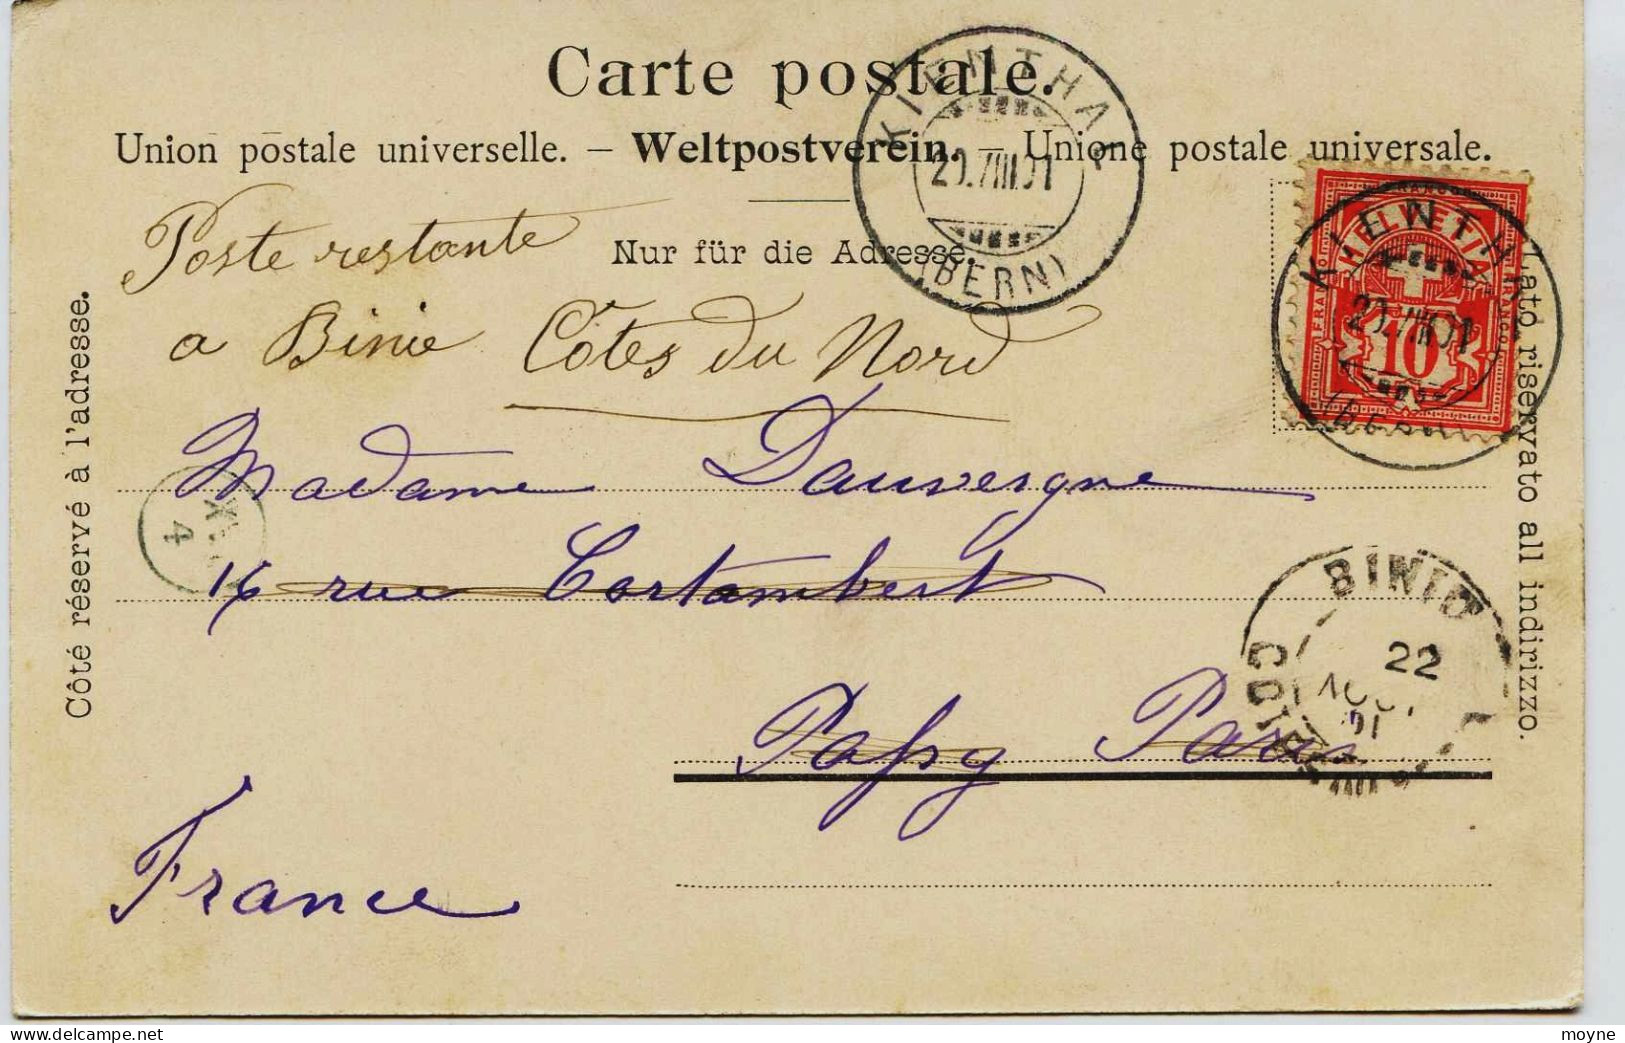 Carte postale.
Union postale universelle. – Weltpostverein. – Unione postale universale.
Nur für die Adresse.
Côté réservé à l'adresse.
Lato riservato all indirizzo.
KIENTHAL
20.VIII.01
(BERN)
FRANCO
HELVETIA
FRANCO
FRANCO
10
KIENTHAL
20.VIII.01
(BERN)
Poste restante
a Binic Côtes du Nord
Madame Dauvergne
16 rue Cortambert
Passy Paris
France
4
BINIC
22
AOUT
01
moyne